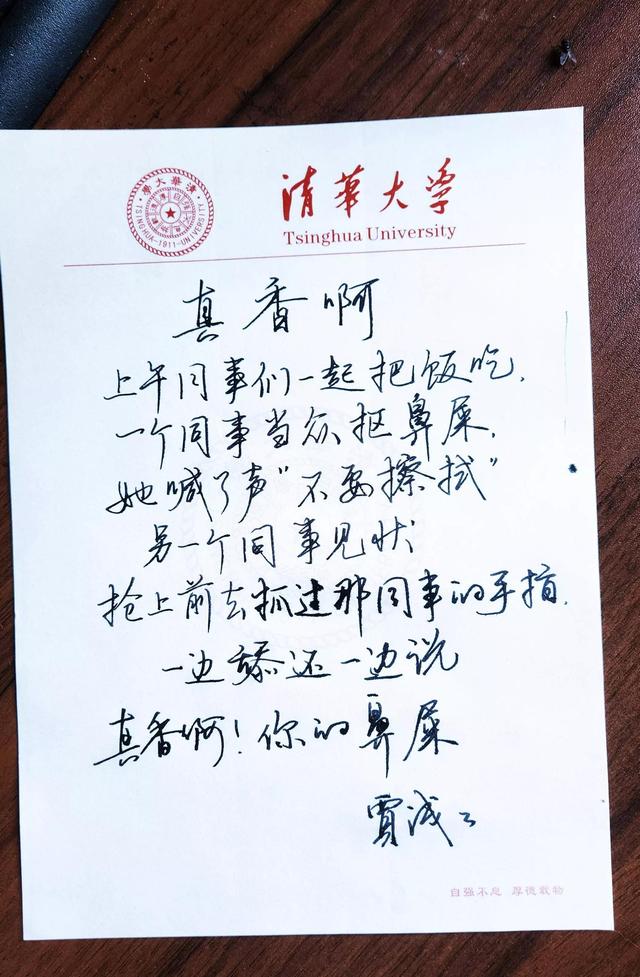 清華大學
TSINGHUA-1911-UNIVERSITY
清华大学
Tsinghua University
真香啊
上午同事们一起把饭吃,
一个同事当众抠鼻屎,
她喊了声"不要擦拭"
另一个同事见状
抢上前去抓过那同事的手指,
一边舔还一边说
真香啊!你的鼻屎
贾浅浅
自强不息 厚德载物